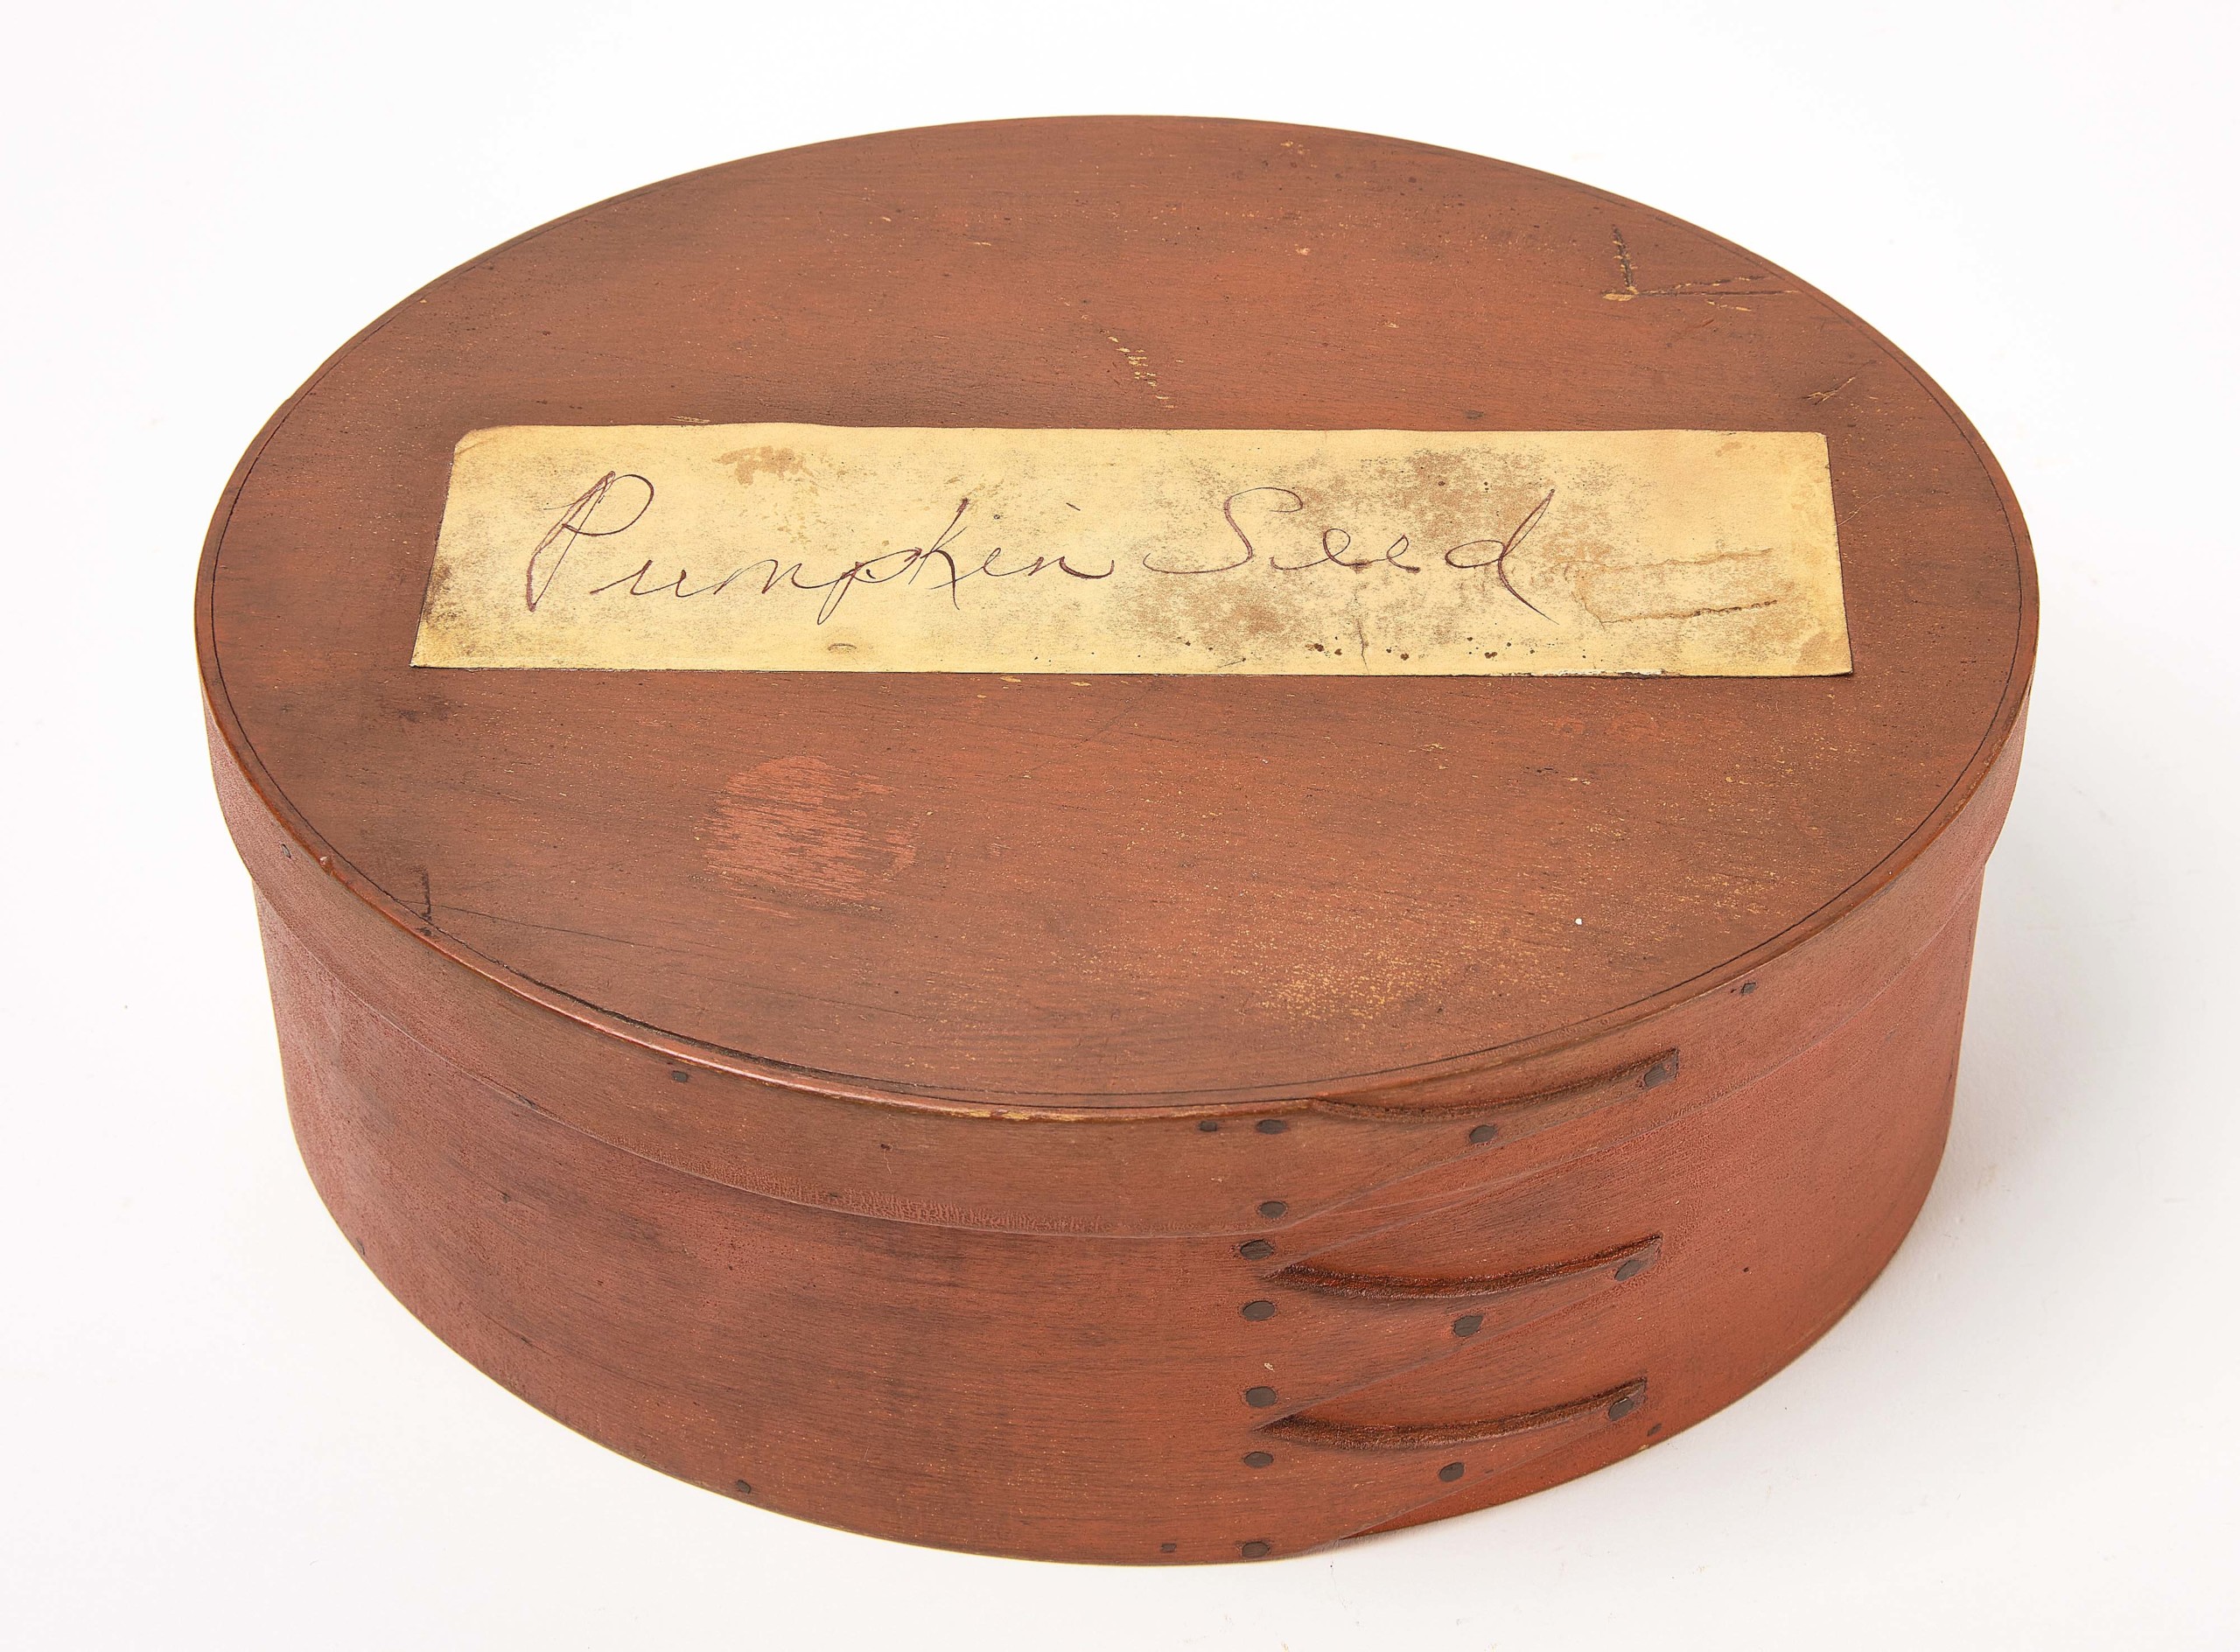 Pumpkin Seed